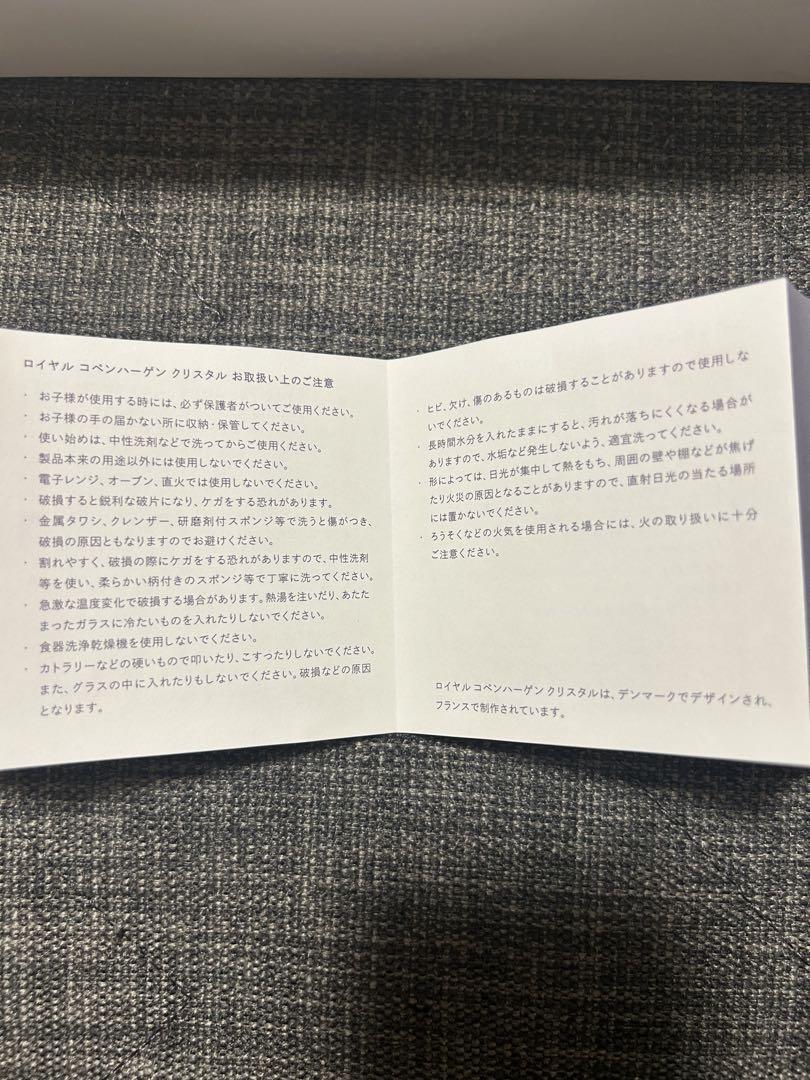 ロイヤル コペンハーゲン クリスタル お取扱い上のご注意
・ お子様が使用する時には、必ず保護者がついてご使用ください。
・ お子様の手の届かない所に収納・保管してください。
・ 使い始めは、中性洗剤などで洗ってからご使用ください。
・ 製品本来の用途以外には使用しないでください。
・ 電子レンジ、オーブン、直火では使用しないでください。
・ 破損すると鋭利な破片になり、ケガをする恐れがあります。
・ 金属タワシ、クレンザー、研磨剤付スポンジ等で洗うと傷がつき、
破損の原因ともなりますのでお避けください。
・ 割れやすく、破損の際にケガをする恐れがありますので、中性洗剤
等を使い、柔らかい柄付きのスポンジ等で丁寧に洗ってください。
・ 急激な温度変化で破損する場合があります。熱湯を注いだり、あたた
まったガラスに冷たいものを入れたりしないでください。
・ 食器洗浄乾燥機を使用しないでください。
・ カトラリーなどの硬いもので叩いたり、こすったりしないでください。
また、グラスの中に入れたりもしないでください。破損などの原因
となります。
・ ヒビ、欠け、傷のあるものは破損することがありますので使用しな
いでください。
・ 長時間水分を入れたままにすると、汚れが落ちにくくなる場合が
ありますので、水垢など発生しないよう、適宜洗ってください。
・ 形によっては、日光が集中して熱をもち、周囲の壁や棚などが焦げ
たり火災の原因となることがありますので、直射日光の当たる場所
には置かないでください。
・ ろうそくなどの火気を使用される場合には、火の取り扱いに十分
ご注意ください。
ロイヤル コペンハーゲン クリスタルは、デンマークでデザインされ、
フランスで制作されています。